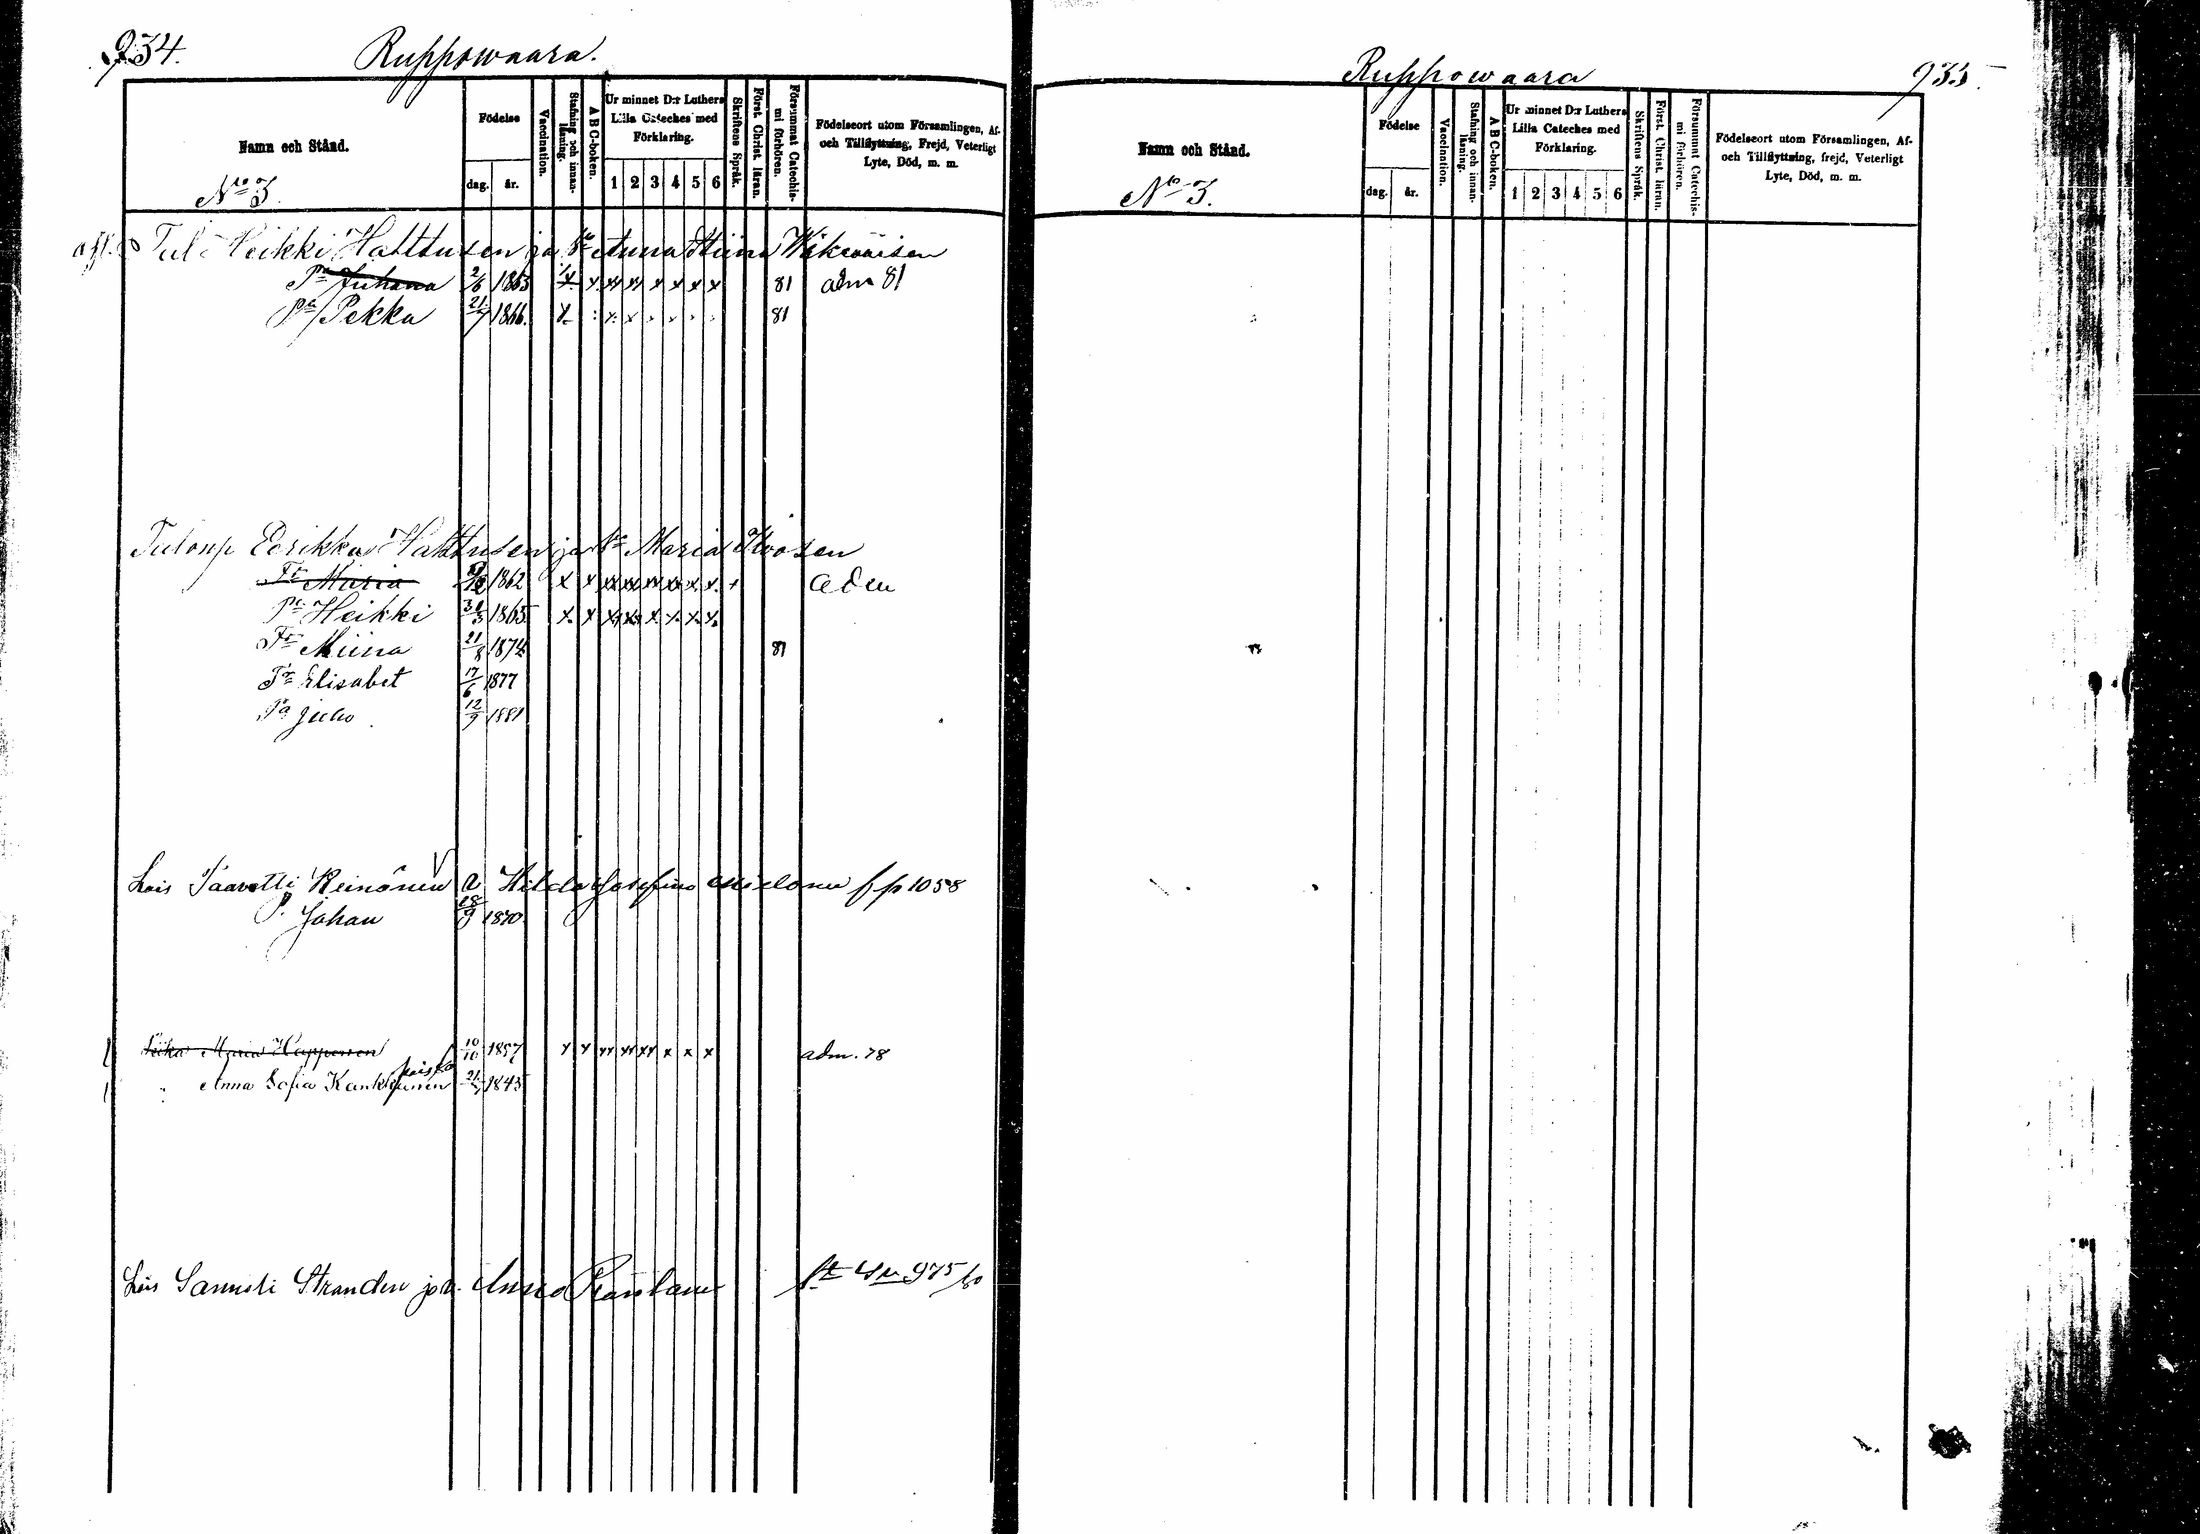 934.
Ruppowaara.
Namn och Stånd.
No 3.
Födelse
dag. år.
Vaccination.
Stafning och innan-läsning.
A B C-boken.
Ur minnet D:r Luthers Lilla Cateches med Förklaring.
1 2 3 4 5 6
Skriftens Språk.
Först. Christ. läran.
Försummat Catechis-mi förhören.
Födelseort utom Församlingen, Af- och Tillflyttning, Frejd, Veterligt Lyte, Död, m. m.
Tul Heikki Hattusen ja Anna Stiina
Pa Juhana 1863 x x xx xx x x x x 81 adm 81
Pa Pekka 21/7 1866. x 81
Eerikka Hattusen ja Maria
Tr Maria 1862 x x xx xx xx xx x x. adm
Pa Heikki 1865 x x x x x x
Tr Miina 21/8 1874 81
Tr Elisabet 17/6 1877
Pa Juho 12/9 1881
Lois Taavetti Reinonen Hilda Josefina p 1058
P. Johan 28/9 1870
Maria Happonen 10/10 1857 x x xx xx xx x x x adm. 78
" Anna Sofia 1843
Lois Samuli Stranden ja Anna 975/80
Ruppowaara
935
Namn och Stånd.
No 3.
Födelse
dag. år.
Vaccination.
Stafning och innan-läsning.
A B C-boken.
Ur minnet D:r Luthers Lilla Cateches med Förklaring.
1 2 3 4 5 6
Skriftens Språk.
Först. Christ. läran.
Försummat Catechis-mi förhören.
Födelseort utom Församlingen, Af- och Tillflyttning, frejd, Veterligt Lyte, Död, m. m.